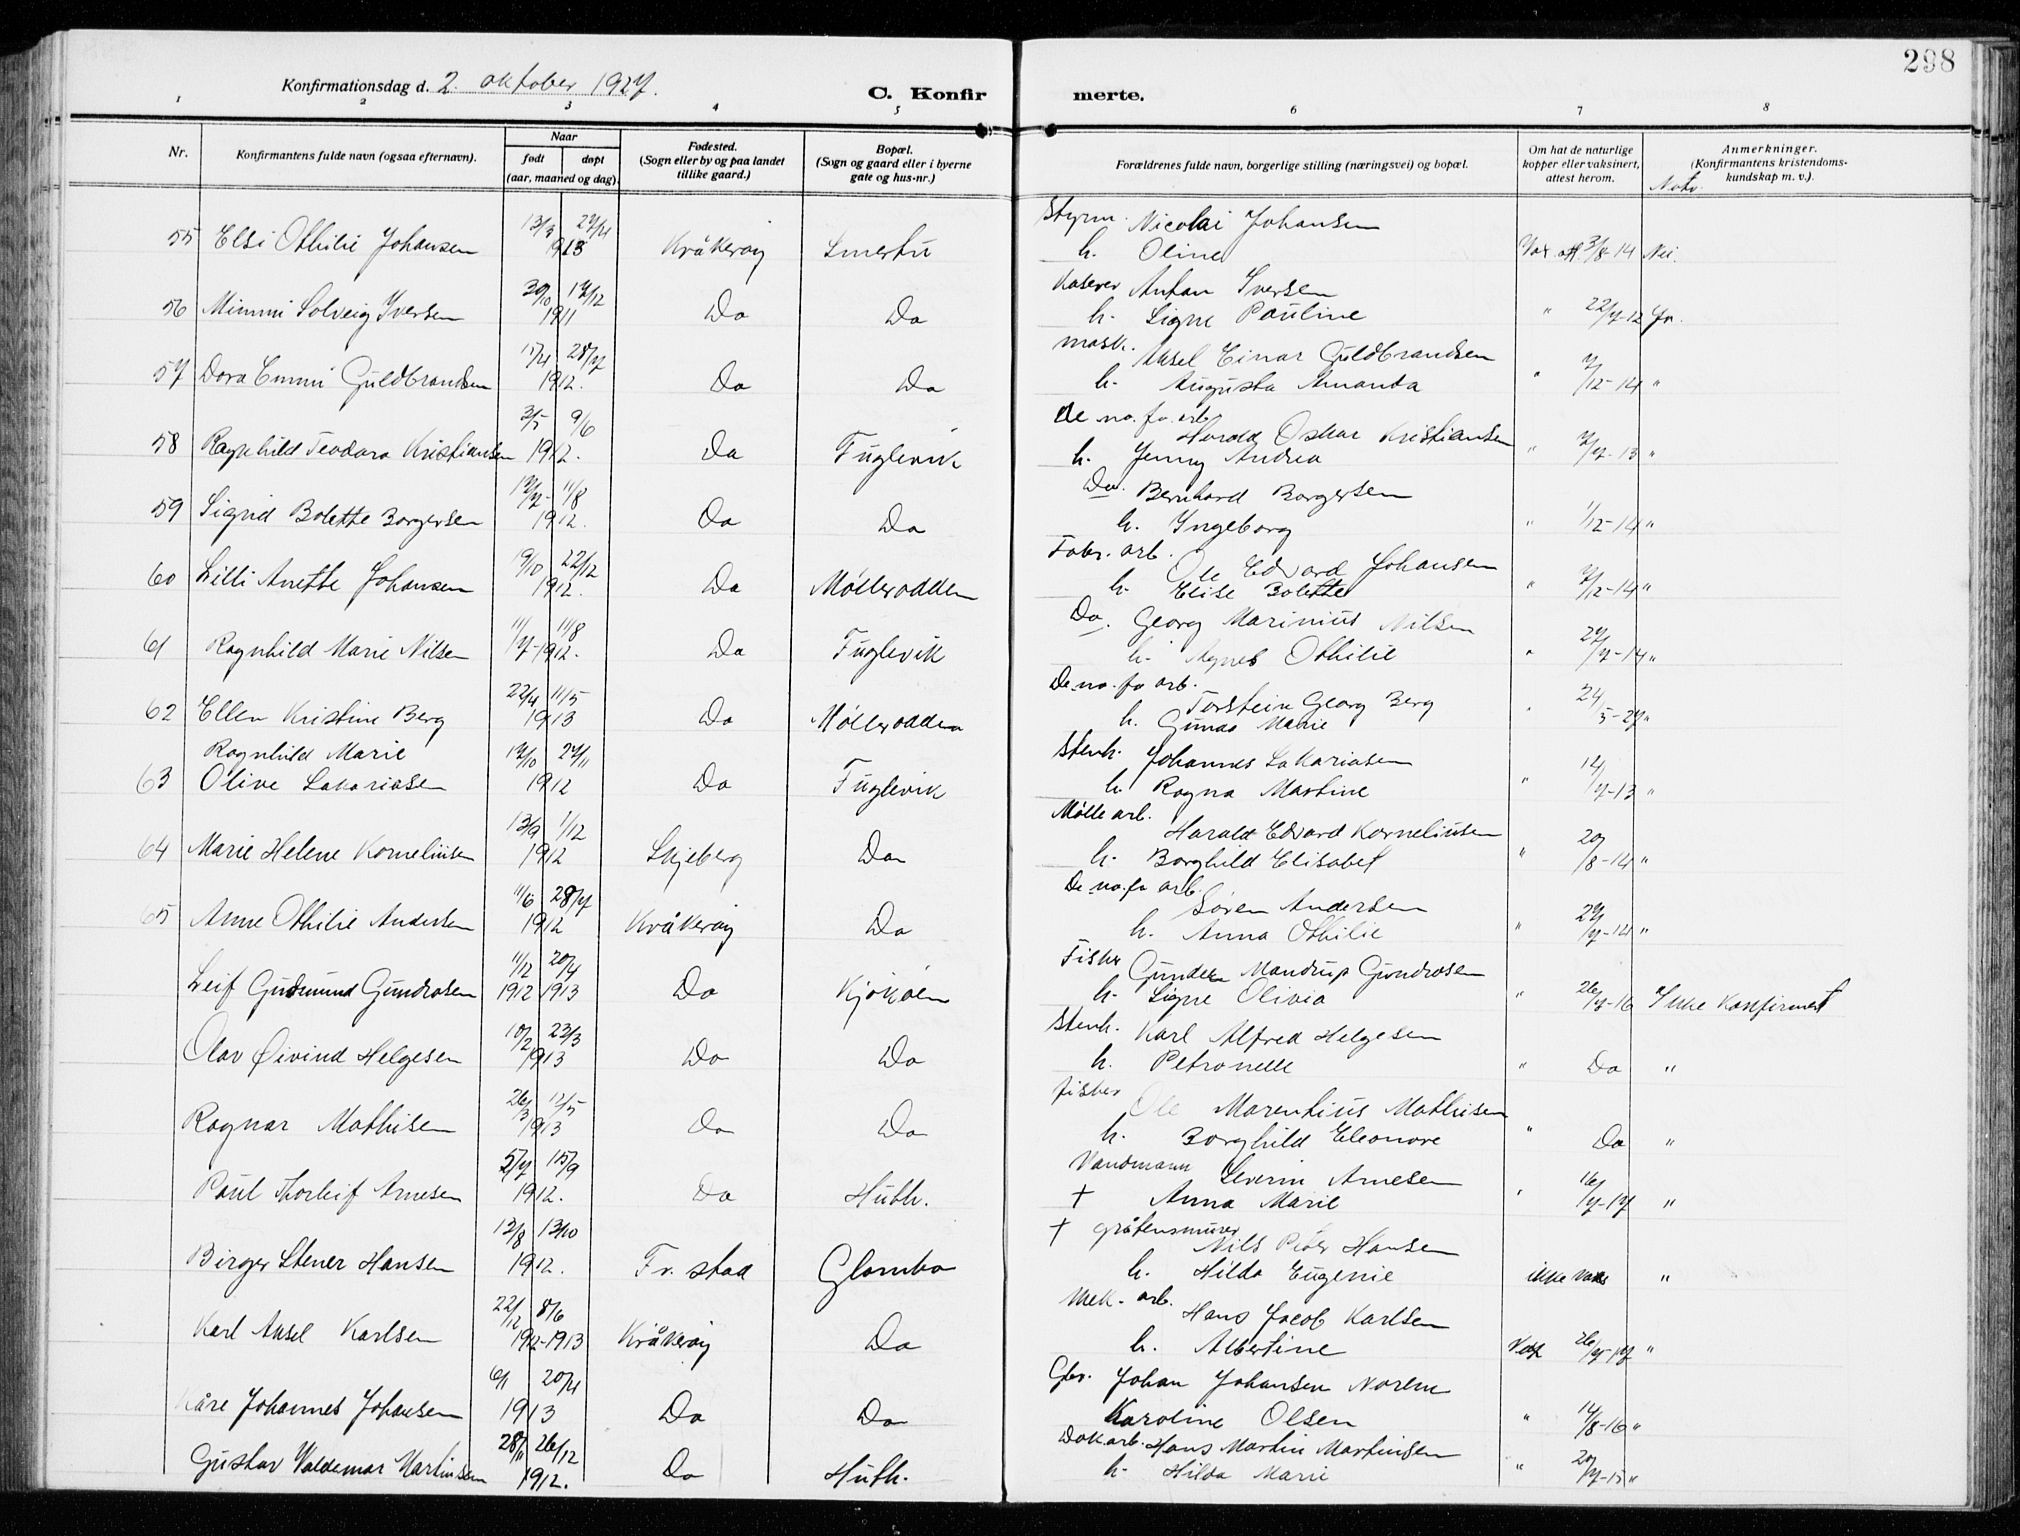 298
Konfirmationsdag d. 2. oktober 1927.
C. Konfir merte.
1 2 3 4 5 6 7 8
Nr.
Konfirmantens fulde navn (ogsaa efternavn).
Naar
født døpt
(aar, maaned og dag).
Fødested.
(Sogn eller by og paa landet
tillike gaard.)
Bopæl.
(Sogn og gaard eller i byerne
gate og hus-nr.)
Forældrenes fulde navn, borgerlige stilling (næringsvei) og bopæl.
Om hat de naturlige
kopper eller vaksinert,
attest herom.
Anmerkninger.
(Konfirmantens kristendoms-
kundskap m. v.).
Styrm. Nicolai Johansen
55 Elsi Othilie Johansen 13/3 27/4 1913 Kråkerøy Smertu h. Oline Vax. att. 3/8-14 Nei.
Anton Iversen
56 Mimmi Solveig Iversen 30/10 17/12 1911 Do Do h. Signe Pauline " 22/7-12 Ja.
mask. Aksel Einar Guldbrandsen
57 Dora Emmi Guldbrandsen 15/4 28/7 1912. Do Do h. Augusta Amanda " 7/12-14 "
De no. fa. arb. Harald Oskar Kristiansen
58 Ragnhild Teodora Kristiansen 3/5 9/6 1912. Do Fuglevik h. Jenny Andrea " 7/7-13 "
Do. Bernhard Borgersen
59 Sigrid Bolette Borgersen 11/8 1912. Do Do h. Ingeborg " 1/12-14 "
Fabr. arb. Ole Edvard Johansen
60 Lilli Anette Johansen 19/10 22/12 1912. Do Møllerodden h. Elise Bolette " 7/12-14 "
Do. Georg Marinius Nilsen
61 Ragnhild Marie Nilsen 11/7 11/8 1912. Do Fuglevik h. Agnes Othilie " 27/7-14 "
De no. fa arb. Torstein Georg Berg
62 Ellen Kristine Berg 22/4 11/5 1913 Do Møllerodden h. Gunda Marie " 24/5-27 "
Ragnhild Marie
Stenh. Johannes Sakariasen
63 Olive Sakariasen 17/10 24/11 1912 Do Fuglevik h. Ragna Martine " 14/7-13 "
Mølle arb. Harald Edvard Korneliusen
64 Marie Helene Korneliusen 13/9 1/12 1912 Skjeberg Do h. Borghild Elisabet " 20/8-14 "
De no. fa arb. Søren Andersen
65 Anne Othilie Andersen 11/6 28/7 1912 Kråkerøy Do h. Anna Othilie " 27/7-14 "
Fisker Gunder Mandrup Gundrosen
Leif Gudmund Gundrosen 11/12 1912 20/4 1913 Do Kjøkøen h. Signe Olivia " 26/7-16 Ikke Konfirmert
Stenh. Karl Alfred Helgesen
Olav Øivind Helgesen 10/2 23/3 1913 Do Do h. Petronelle " Do "
Fisker Ole Marentius Mathisen
Ragnar Mathisen 26/3 12/5 1913 Do Do h. Borghild Eleonore " Do "
Vandmann Severin Arnesen
Paul Thorleif Arnesen 5/7 15/9 1912. Do Huth. † Anna Marie " 16/7-17 "
† gråstensmurer Nils Peder Hansen
Birger Stener Hansen 13/8 13/10 1912. Fr. stad Glombo h. Hilda Eugenie ikke vaks "
Mek. arb. Hans Jacob Karlsen
Karl Aksel Karlsen 22/12 8/6 1912-1913 Kråkerøy Do h. Albertine 26/7-17 "
Gbr. Johan Johansen Noren
Kåre Johannes Johansen 6/1 20/4 1913 Do Do Karoline Olsen " 14/8-16 "
Dokarb. Hans Martin Martinsen
Gustav Valdemar Martinsen 28/11 26/12 1912. Do Huth. h. Hilda Marie " 20/7-15 "